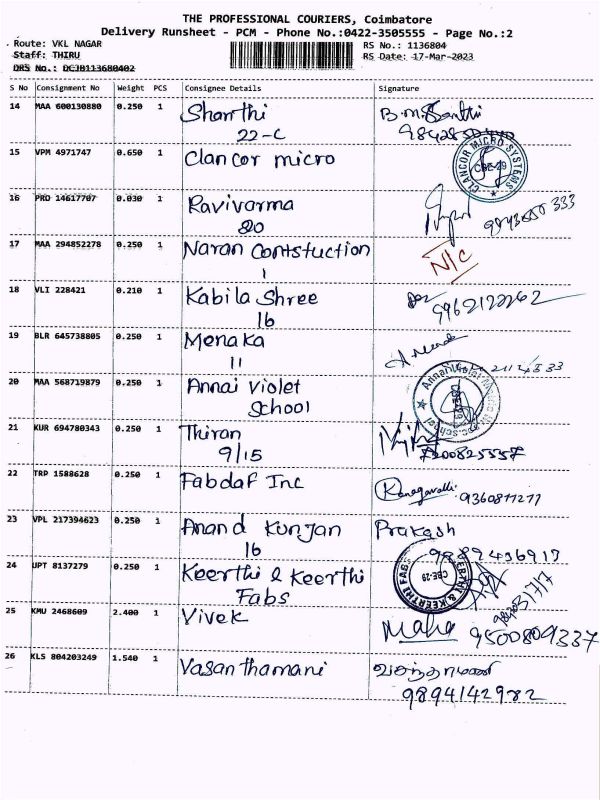 THE PROFESSIONAL COURIERS, Coimbatore
Delivery Runsheet - PCM - Phone No.:0422-3505555 - Page No.:2
Route: VKL NAGAR RS No.: 1136804
Staff: THIRU RS Date: 17-Mar-2023
DRS No.: DCJB113680402
S No Consignment No Weight PCS Consignee Details Signature
14 MAA 600130880 0.250 1 Shanthi
22-C
15 VPM 4971747 0.650 1 Clancor micro
CLANCOR MICRO SYSTEMS
CBE-29
16 PRO 14617707 0.030 1 Ravivarma
20
17 MAA 294852278 0.250 1 Naran Contstuction N/C
1
18 VLI 228421 0.210 1 Kabila Shree 9962122262
16
19 BLR 645738805 0.250 1 Menaka
11
20 MAA 568719879 0.250 1 Annai Violet
School
21 KUR 694780343 0.250 1 Thiran
9/15 7200825557
22 TRP 1588628 0.250 1 Fabdaf Inc Kanagavalli
23 VPL 217394623 0.250 1 Anand Kunjan Prakash
16
24 UPT 8137279 0.250 1 Keerthi & Keerthi
Fabs
CBE-29
25 KMU 2468609 2.400 1 Vivek Maha 9500809337
26 KLS 804203249 1.540 1 Vasanthamani வசந்தாமணி
9894142982